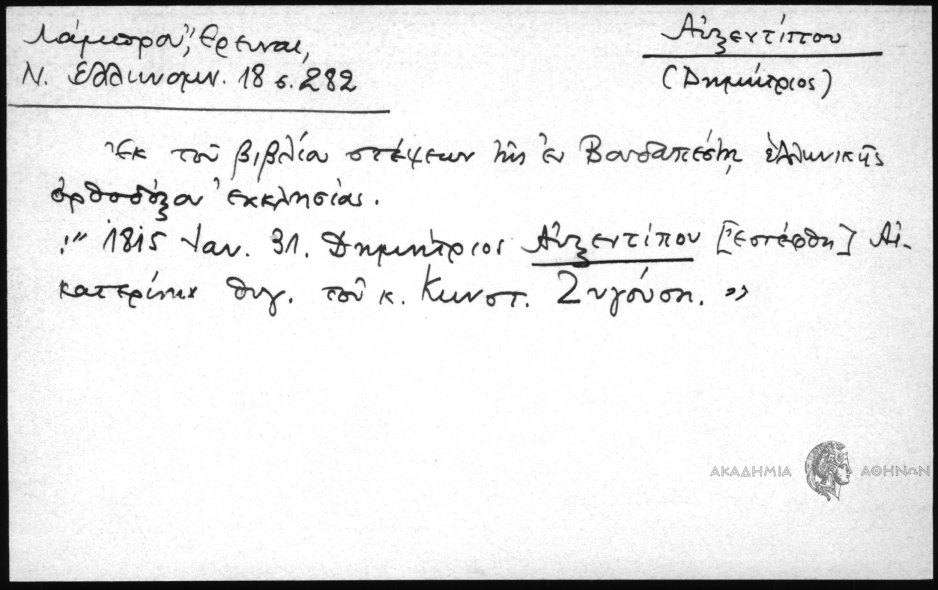 Λάμπρου, Ἔρευναι,
Ν. Ἑλληνομν. 18 σ. 282
Αὐξεντίπου
(Δημήτριος)
Ἐκ τοῦ βιβλίου στέψεων τῆς ἐν Βουδαπέστῃ ἑλληνικῆς
ὀρθοδόξου ἐκκλησίας.
"1815 Ἰαν. 31. Δημήτριος Αὐξεντίπου [ἐστέφθη] Αἰ-
κατερίνην θυγ. τοῦ κ. Κωνστ. Ζυγούση."
ΑΚΑΔΗΜΙΑ ΑΘΗΝΩΝ